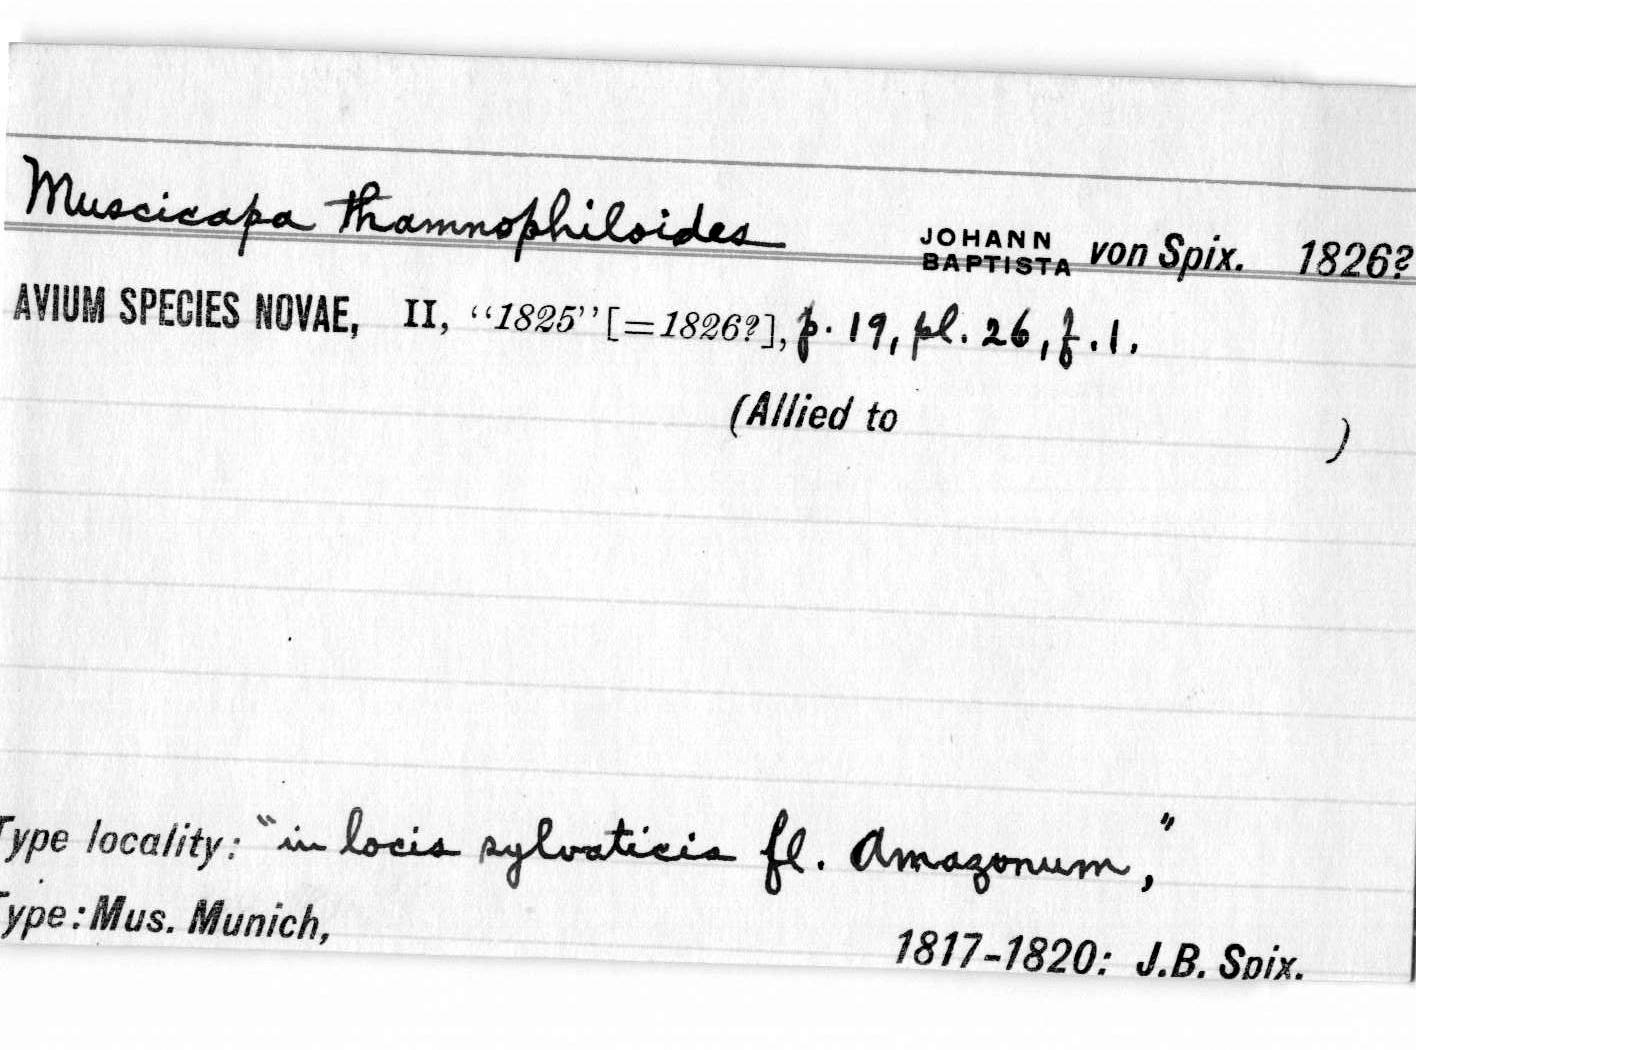 Muscicapa thamnophiloides JOHANN BAPTISTA von Spix. 1826?
AVIUM SPECIES NOVAE, II, "1825" [=1826?], p. 19, pl. 26, f. 1.
(Allied to )
Type locality: "in locis sylvaticis fl. Amazonum,"
Type: Mus. Munich,
1817-1820: J.B. Spix.